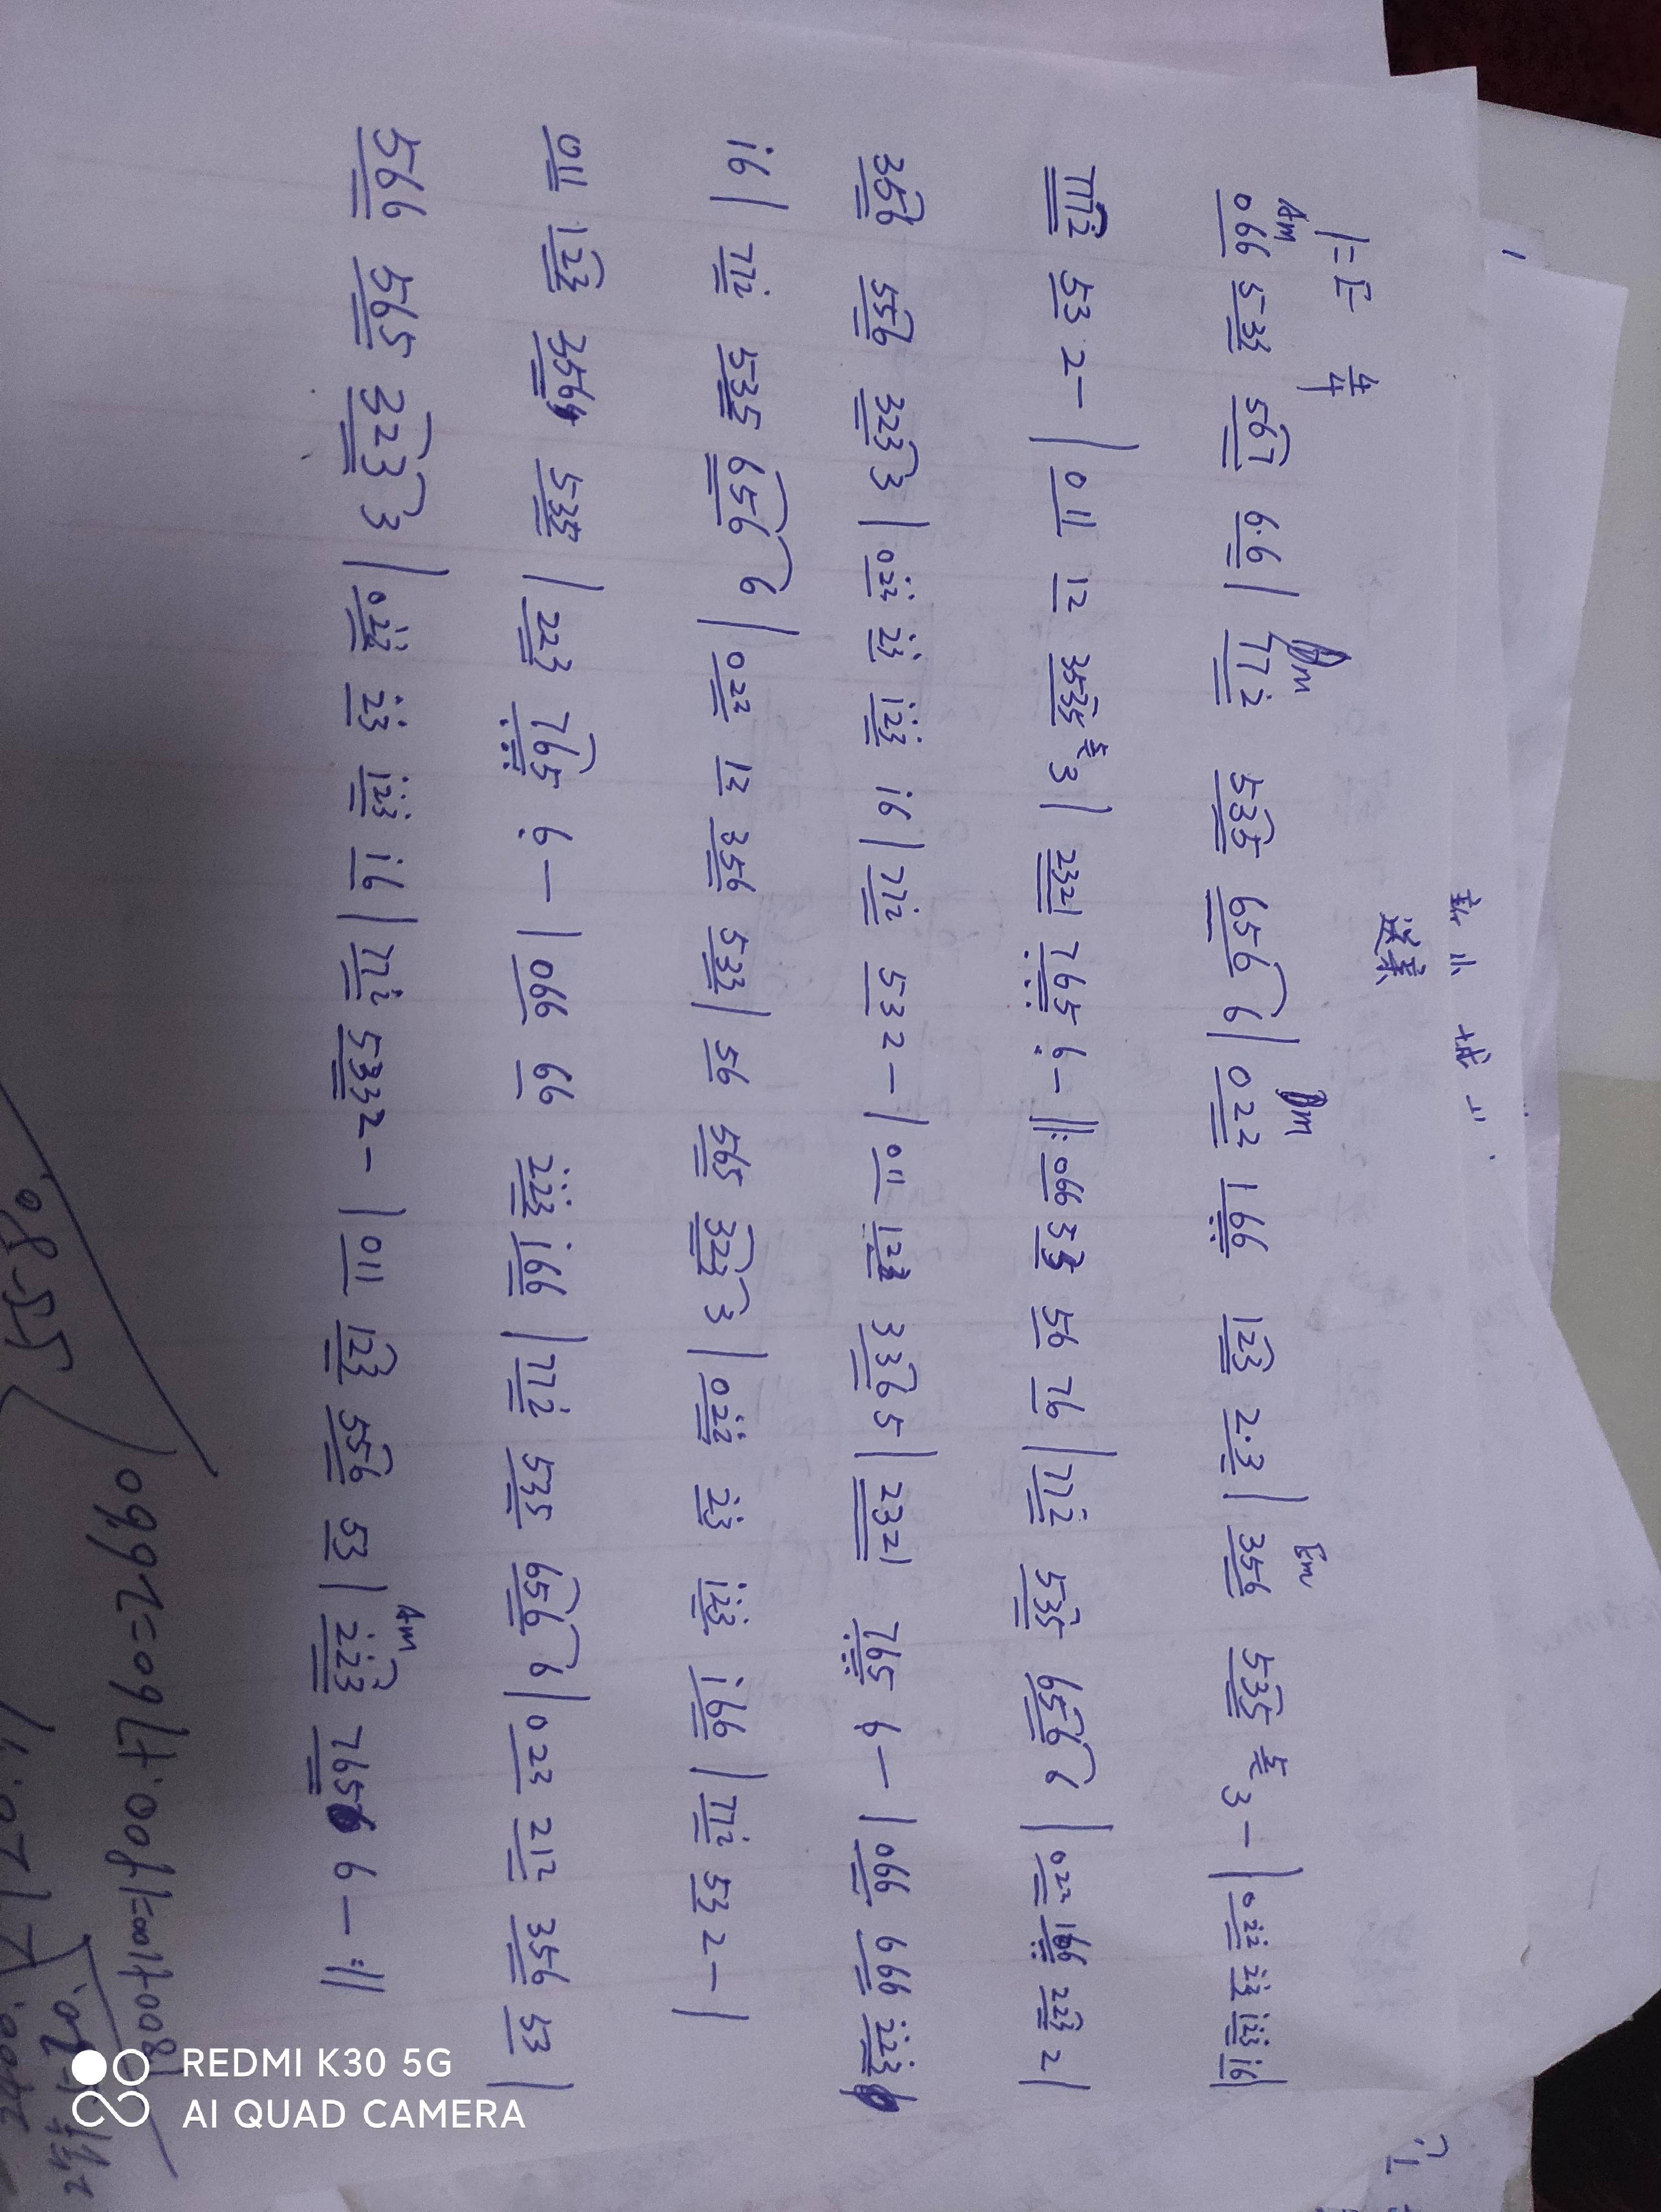 新小城
送亲
1=E 4/4
Am Bm Bm Em
066 533 567 6·6 | 77i 535 656 6 | 022 166 123 2·3 | 356 535 3 - | 022 23 123 i6 |
53 2 - | 011 12 3535 3 | 2321 765 6 - ‖: 066 56 76 | 772 535 656 6 | 022 166 223 2 |
356 556 323 3 | 022 23 123 i6 | 772 532 - | 011 3365 | 2321 765 6 - | 066 666
i6 | 772 535 656 6 | 022 12 356 533 | 56 565 323 3 | 022 23 123 i66 | 772 53 2 - |
011 123 535 | 223 765 6 - | 066 66 223 i66 | 772 535 656 6 | 023 212 356 53 |
Am
566 565 323 3 | 022 23 123 i6 | 772 5332 - | 011 123 556 53 | 223 6 - :‖
08.55
REDMI K30 5G
AI QUAD CAMERA